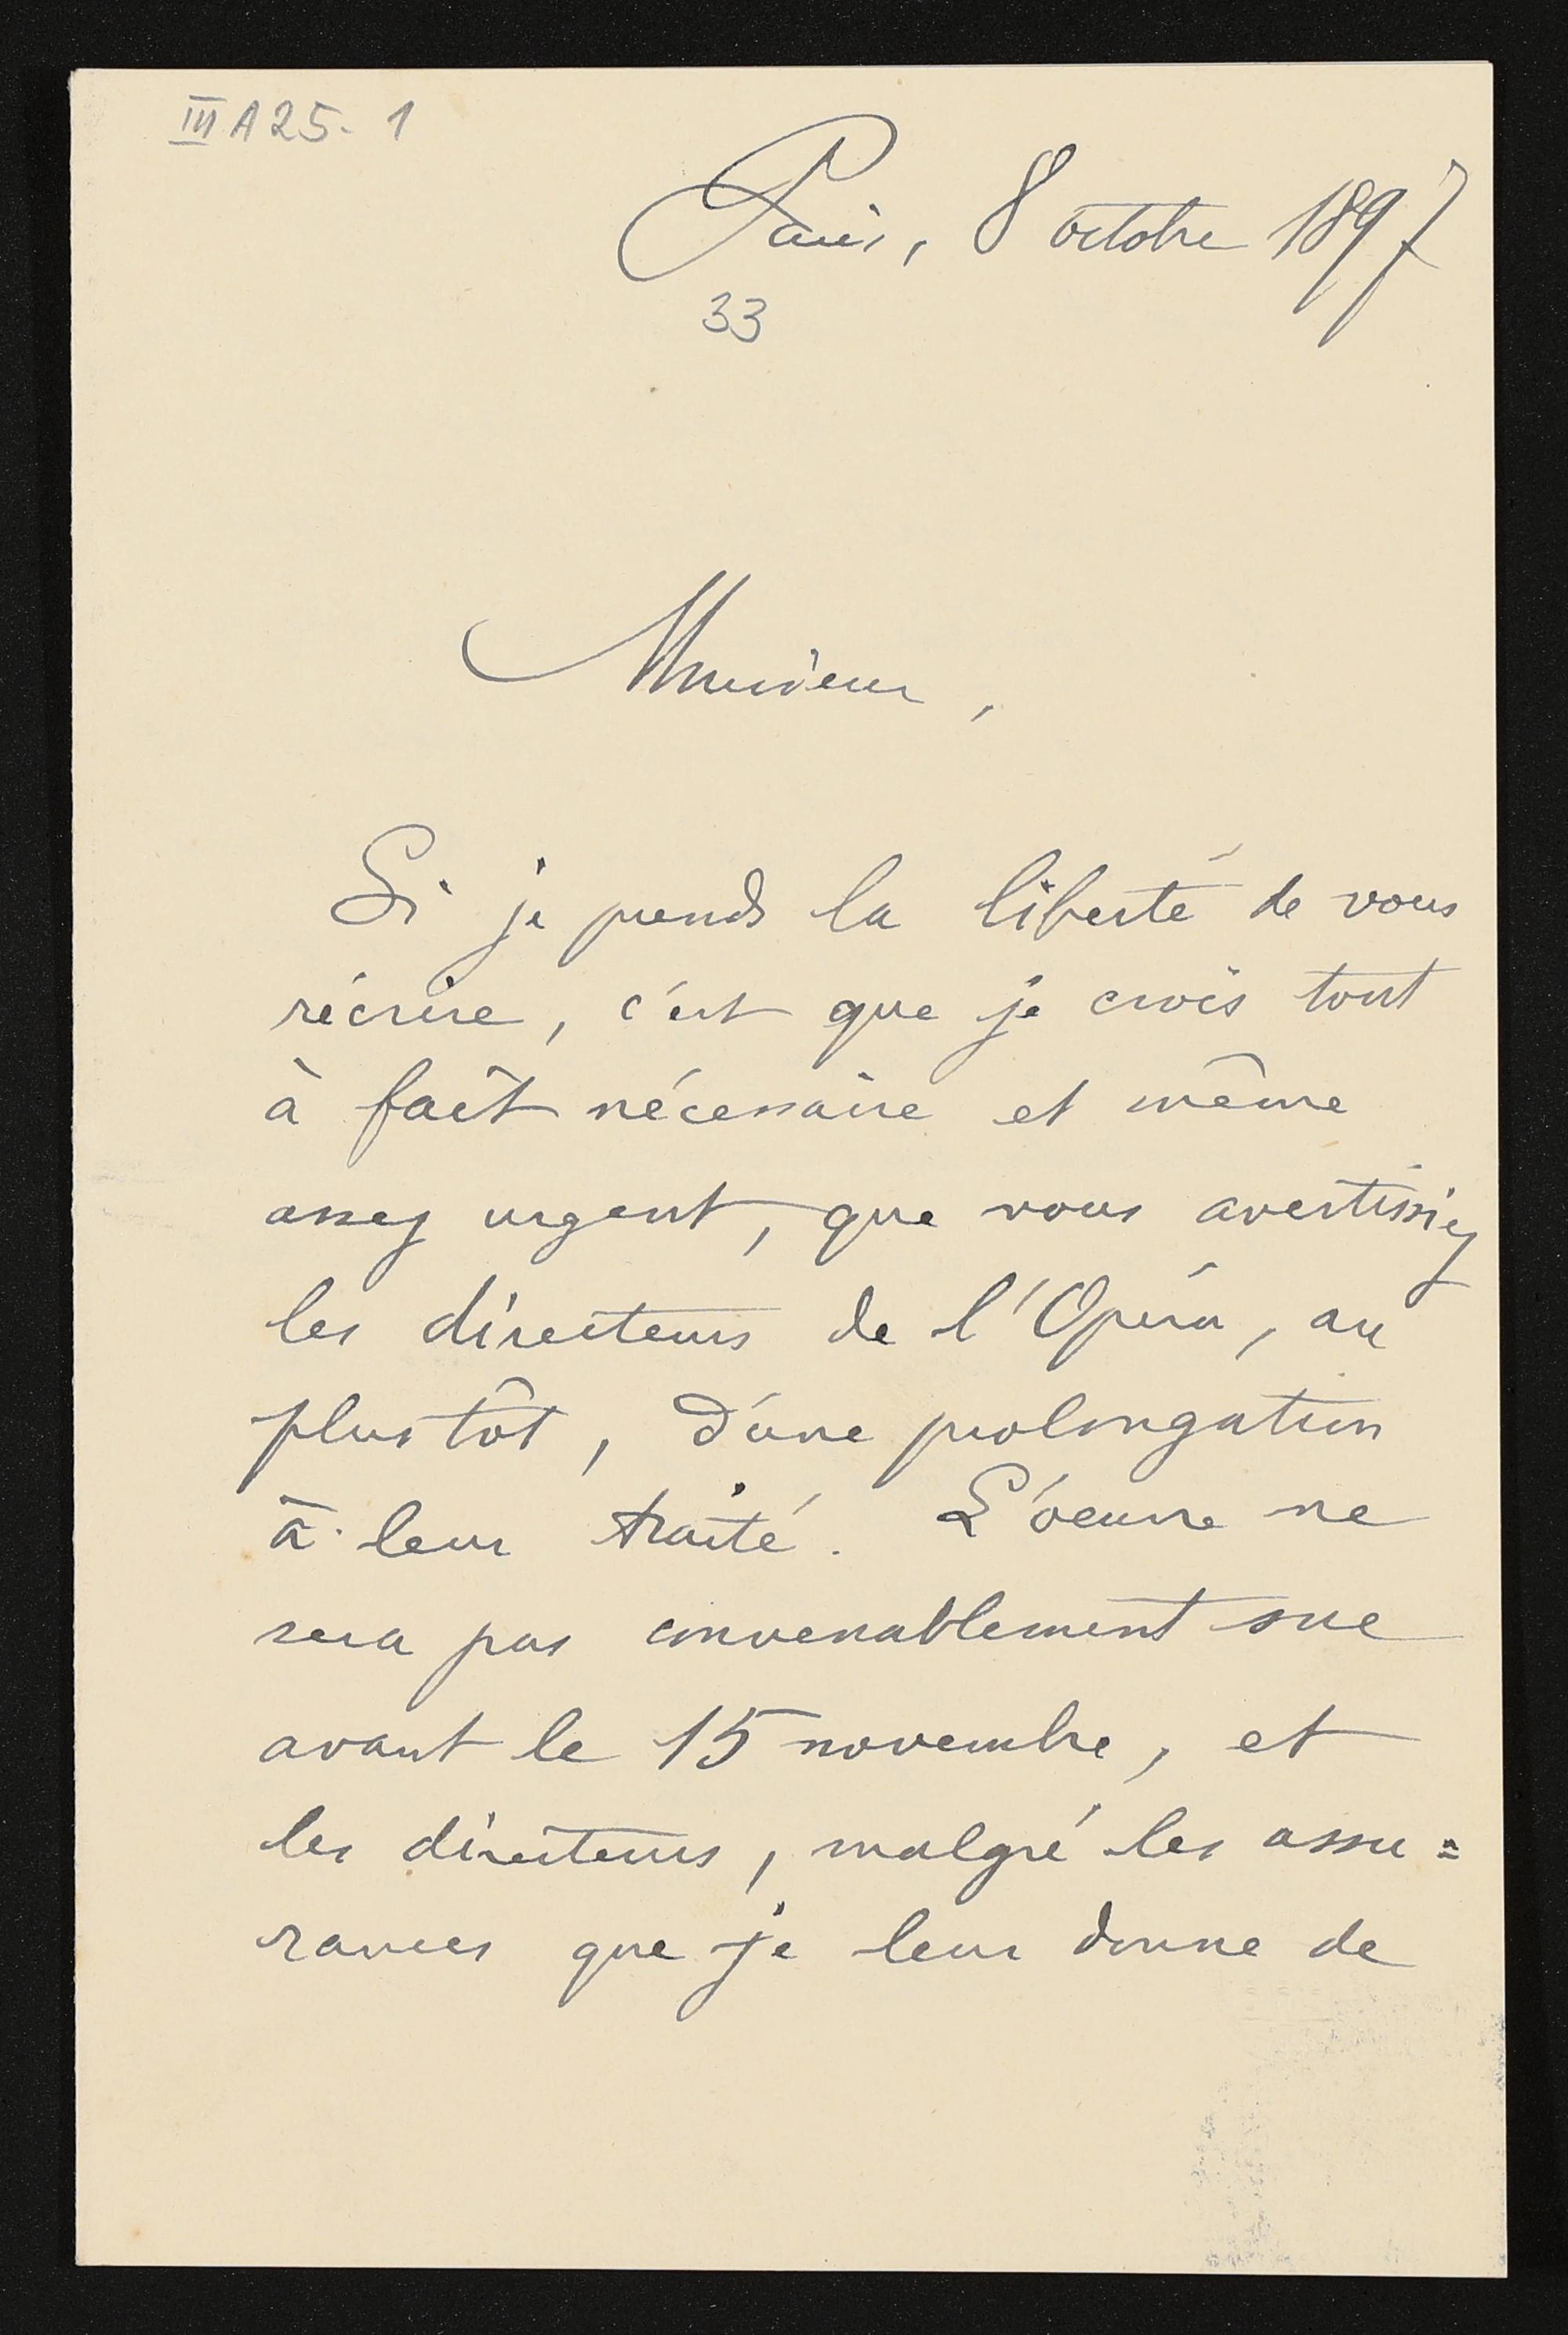 III A 25. 1
Paris, 8 octobre 1897
33
Monsieur,
Si je prends la liberté de vous
récrire, c'est que je crois tout
à fait nécessaire et même
assez urgent, que vous avertissiez
les directeurs de l'Opéra, au
plus tôt, d'une prolongation
à leur traité. L'oeuvre ne
sera pas convenablement sue
avant le 15 novembre, et
les directeurs, malgré les assu=
rances que je leur donne de